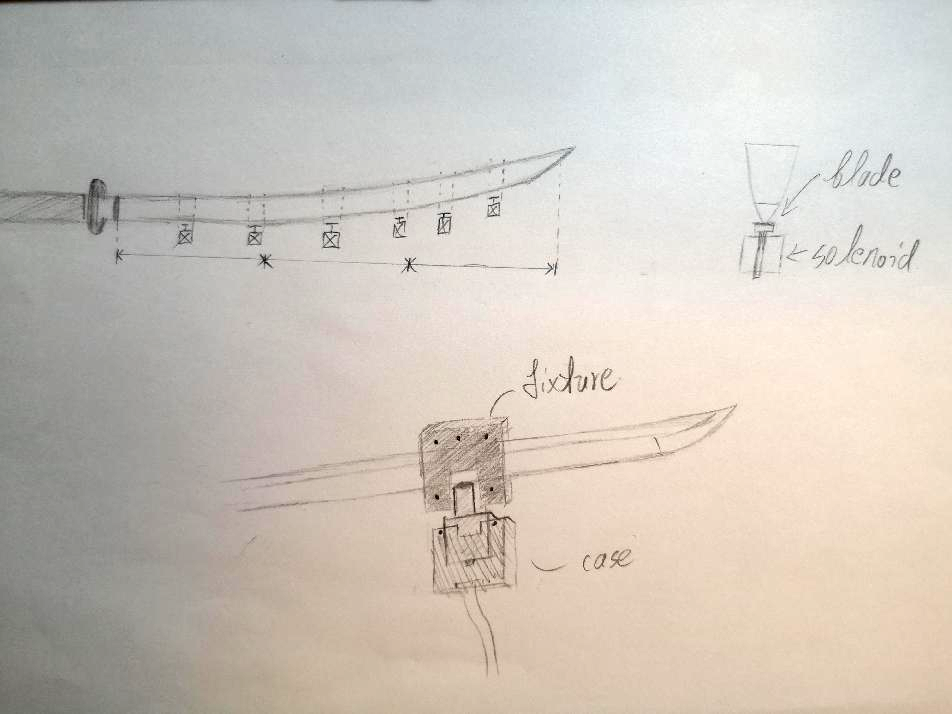 blade
solenoid
fixture
case